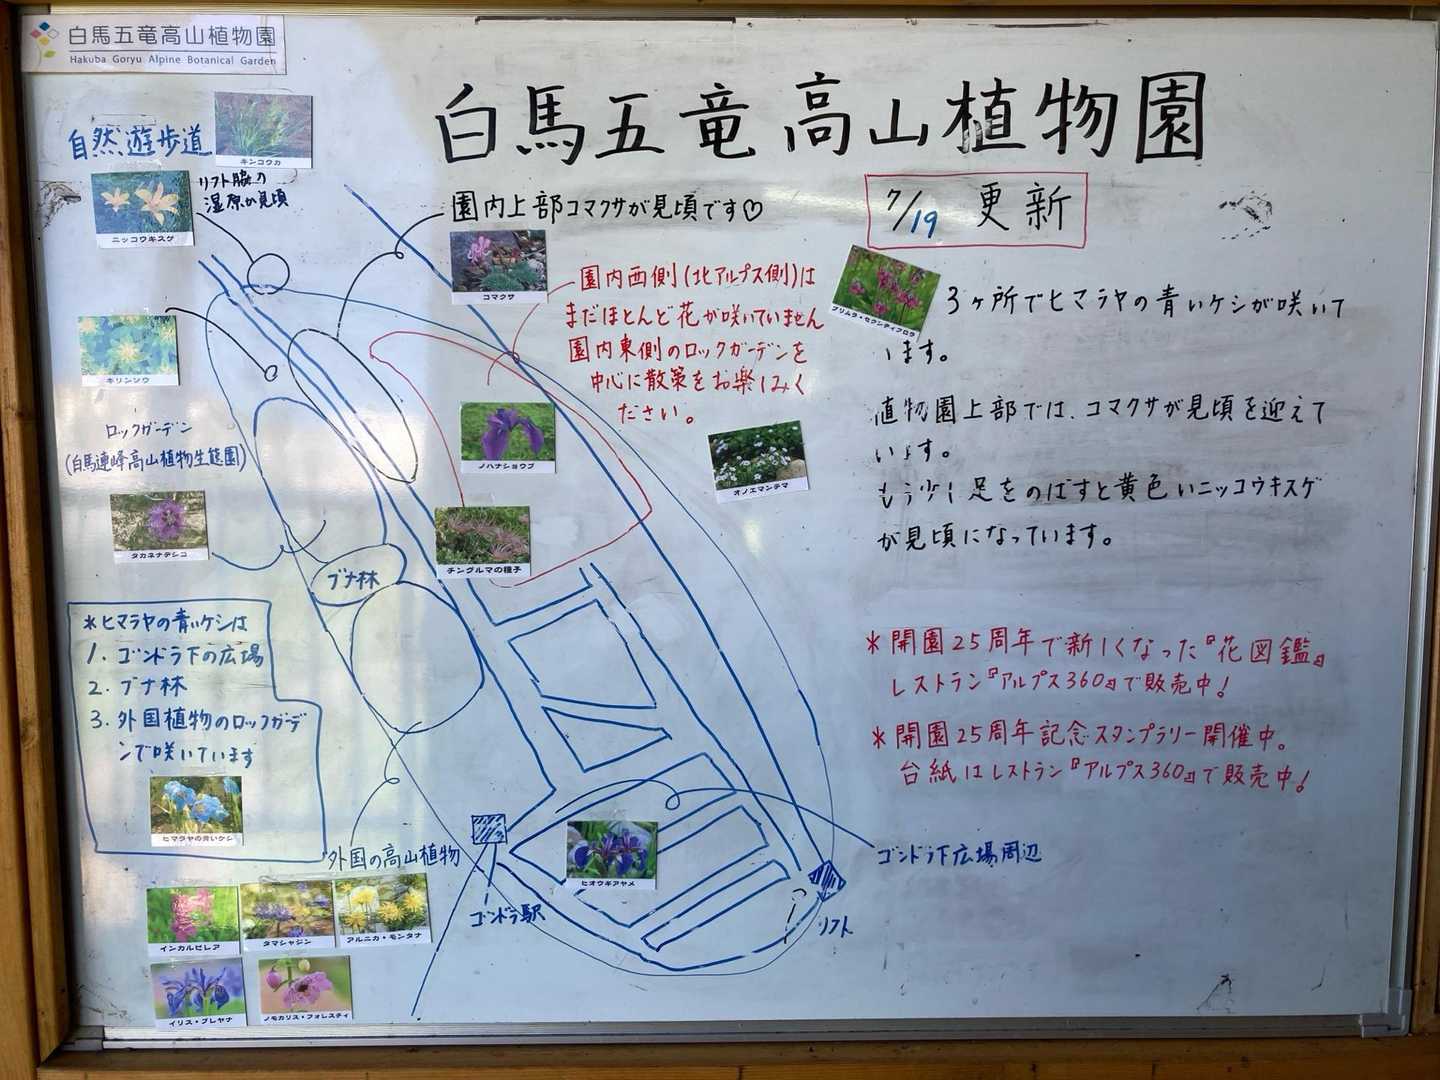 白馬五竜高山植物園
Hakuba Goryu Alpine Botanical Garden
白馬五竜高山植物園
7/19 更新
自然遊歩道
キンコウカ
リフト脇の
湿原が見頃
ニッコウキスゲ
園内上部コマクサが見頃です♡
コマクサ
園内西側(北アルプス側)は
まだほとんど花が咲いていません
園内東側のロックガーデンを
中心に散策をお楽しみく
ださい。
プリムラ・セクンディフロラ
3ヶ所でヒマラヤの青いケシが咲いて
います。
植物園上部では、コマクサが見頃を迎えて
います。
もう少し足をのばすと黄色いニッコウキスゲ
が見頃になっています。
キリンソウ
ロックガーデン
(白馬連峰高山植物生態園)
タカネナデシコ
ノハナショウブ
オノエマンテマ
チングルマの種子
ブナ林
*ヒマラヤの青いケシは
1. ゴンドラ下の広場
2. ブナ林
3. 外国植物のロックガーデ
ンで咲いています
ヒマラヤの青いケシ
*開園25周年で新しくなった『花図鑑』
レストラン『アルプス360』で販売中!
*開園25周年記念スタンプラリー開催中。
台紙はレストラン『アルプス360』で販売中!
外国の高山植物
インカルビレア
タマシャジン
アルニカ・モンタナ
イリス・ブレヤナ
ノモカリス・フォレスティ
ゴンドラ駅
ヒオウギアヤメ
ゴンドラ下広場周辺
リフト